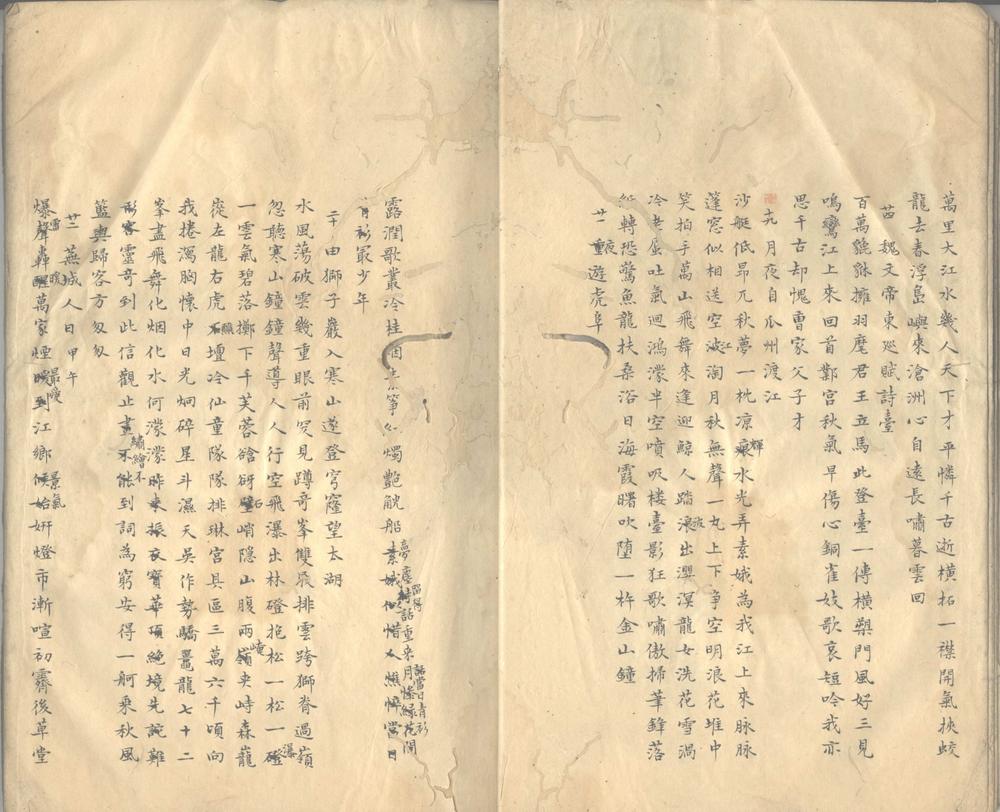 萬里大江水幾人天下才平憐千古逝橫拓一襟開氣挾蛟
龍去春浮島嶼來滄洲心自遠長嘯暮雲回
茜 魏文帝東廵賦詩臺
百萬貔貅擁羽麾君王立馬此登臺一傳橫槊門風好三見
鳴鸞江上來回首鄴宮秋氣早傷心銅雀妓歌哀短吟我亦
思千古却愧曹家父子才
九月夜自瓜州渡江
沙艇低昻兀秋夢一枕凉輝水光弄素娥為我江上來脉脉
蓬窓似相送空江淘月秋無聲一丸上下爭空明浪花堆中
笑拍手萬山飛舞來逢迎鯨人踏浪出溟龍女洗花雪渦
冷老蜃吐氣迴鴻濛半空噴吸楼臺影狂歌嘯傲掃筆鋒落
紙轉恐驚魚龍扶桑浴日海霞曙吹墮一杵金山鐘
廿 重遊虎阜
露潤歌叢冷桂 箏 燭艷觥船 惜人憔悴當日
青衫最少年
二十 由獅子巖入寒山遂登穹窿望太湖
水風蕩破雲幾重眼前突見蹲奇峯雙扆排雲跨獅脊過嶺
忽聽寒山鐘鐘聲導人人行空飛瀑出林磴挹松一松一瀑
一雲氣碧落擲下千芙蓉硲砑石峭隐山腹兩崦夾峙森龍
從左龍右虎照壇冷仙童隊隊排琳宮具區三萬六千頃向
我捲濁胸懷中日光炯碎星斗濕天吳作勢驕鼉龍七十二
峯盡飛舞化烟化水何濛濛昨來振衣寶華頂絕境先詫難
形容靈奇到此信觀止繡繪不到詞為窮安得一舸乘秋風
籃輿歸客方匆匆
廿三 蕪城人日 甲午
爆聲轟暖萬家煙最到江鄉景氣姸燈市漸喧初霽後草堂